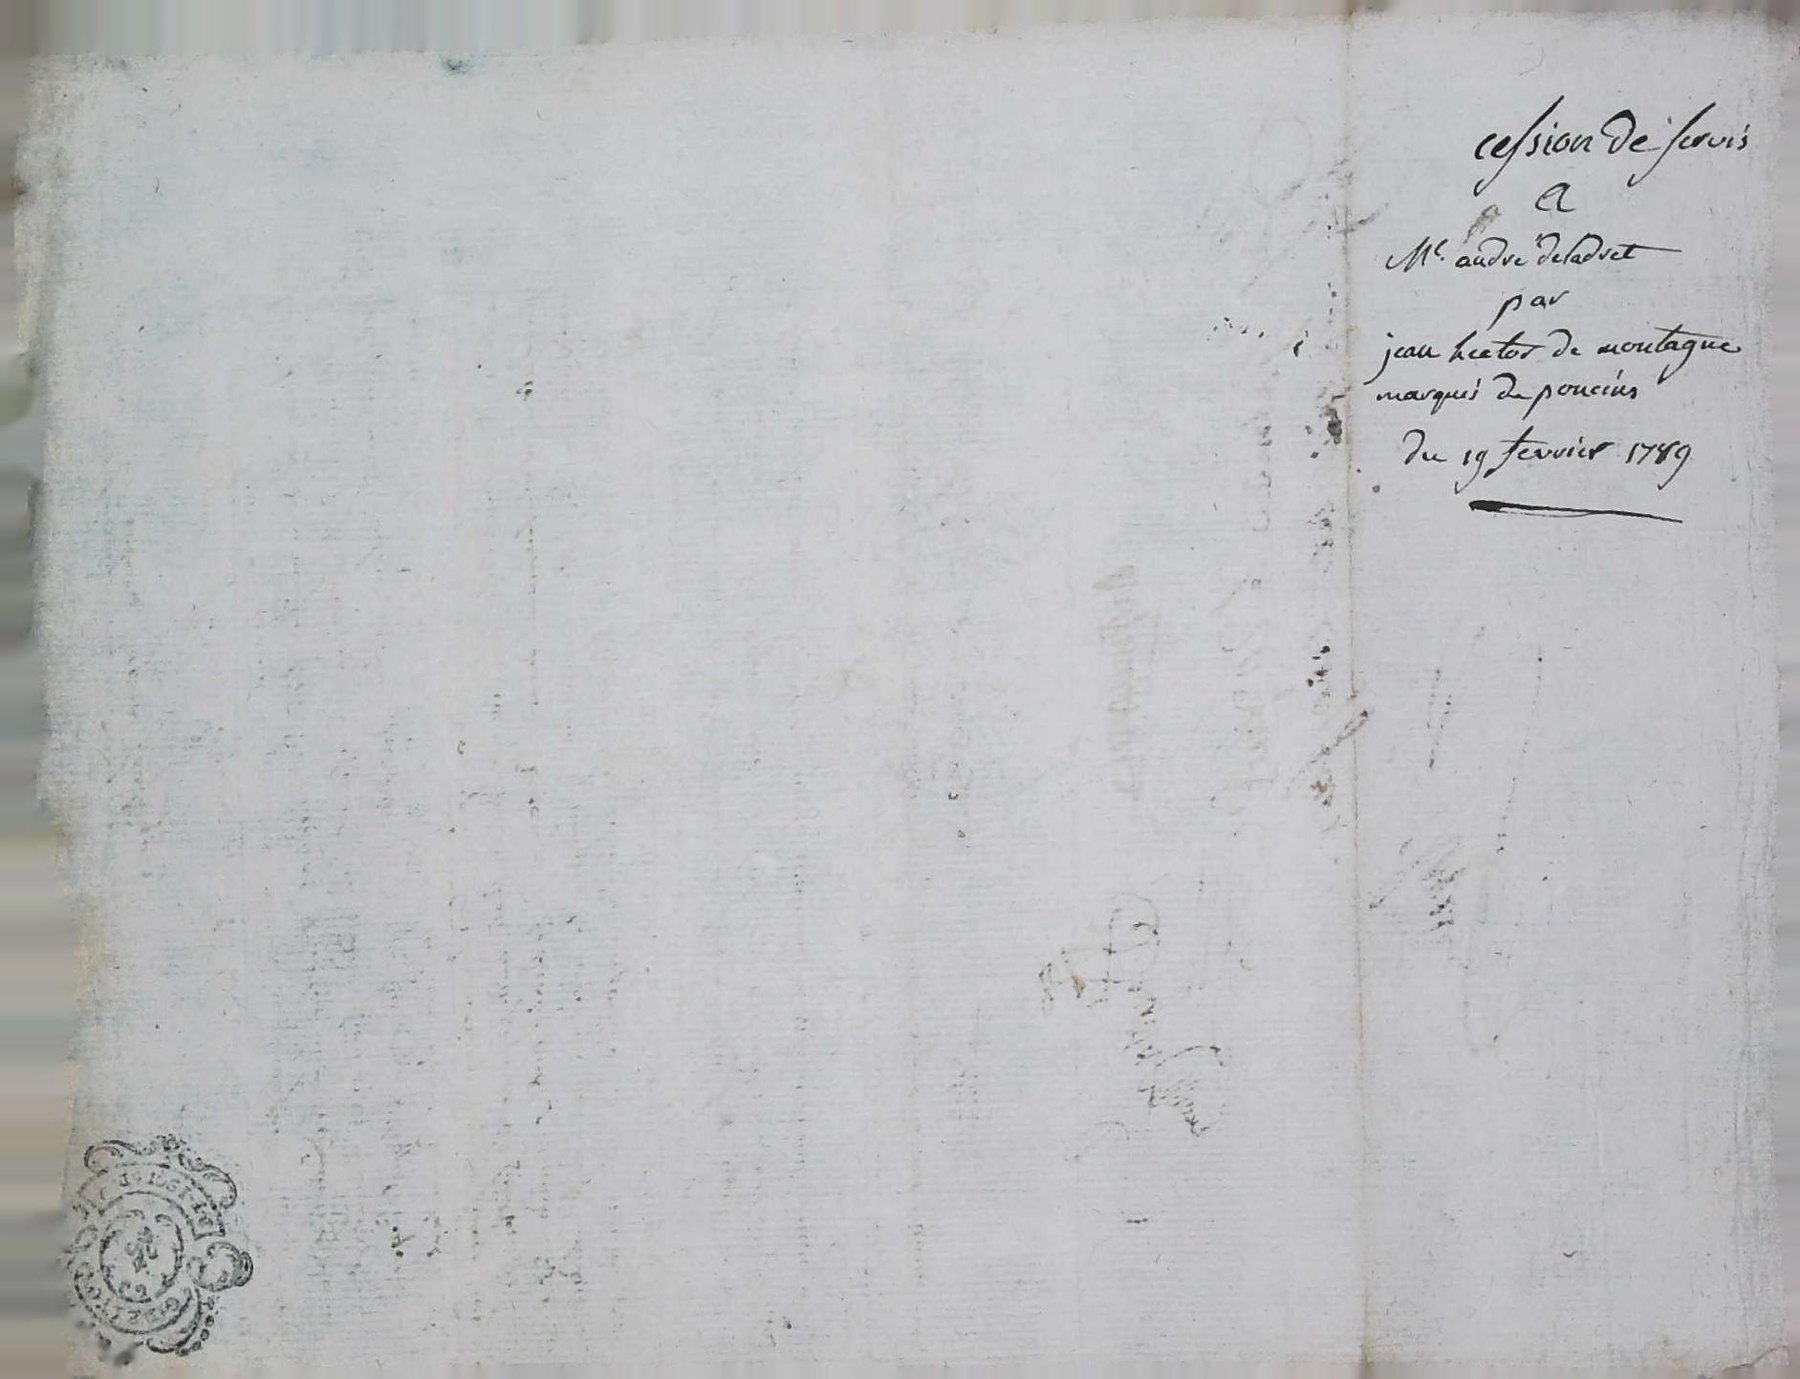 cession de servis
A
Mr. andré deladret
par
jean hector de montagne
marquis de poncins
du 19 fevrier 1789